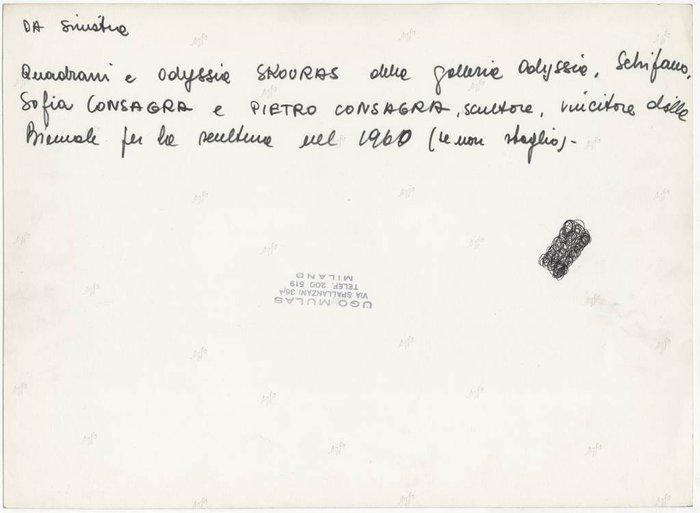 DA Sinistra
Quadrani e Odyssia SKOURAS della galleria Odyssia, Schifano,
Sofia CONSAGRA e PIETRO CONSAGRA, scultore, vincitore della
Biennale per la scultura nel 1960 (se non sbaglio)-
UGO MULAS
VIA SPALLANZANI 36/4
TELEF. 200 519
MILANO